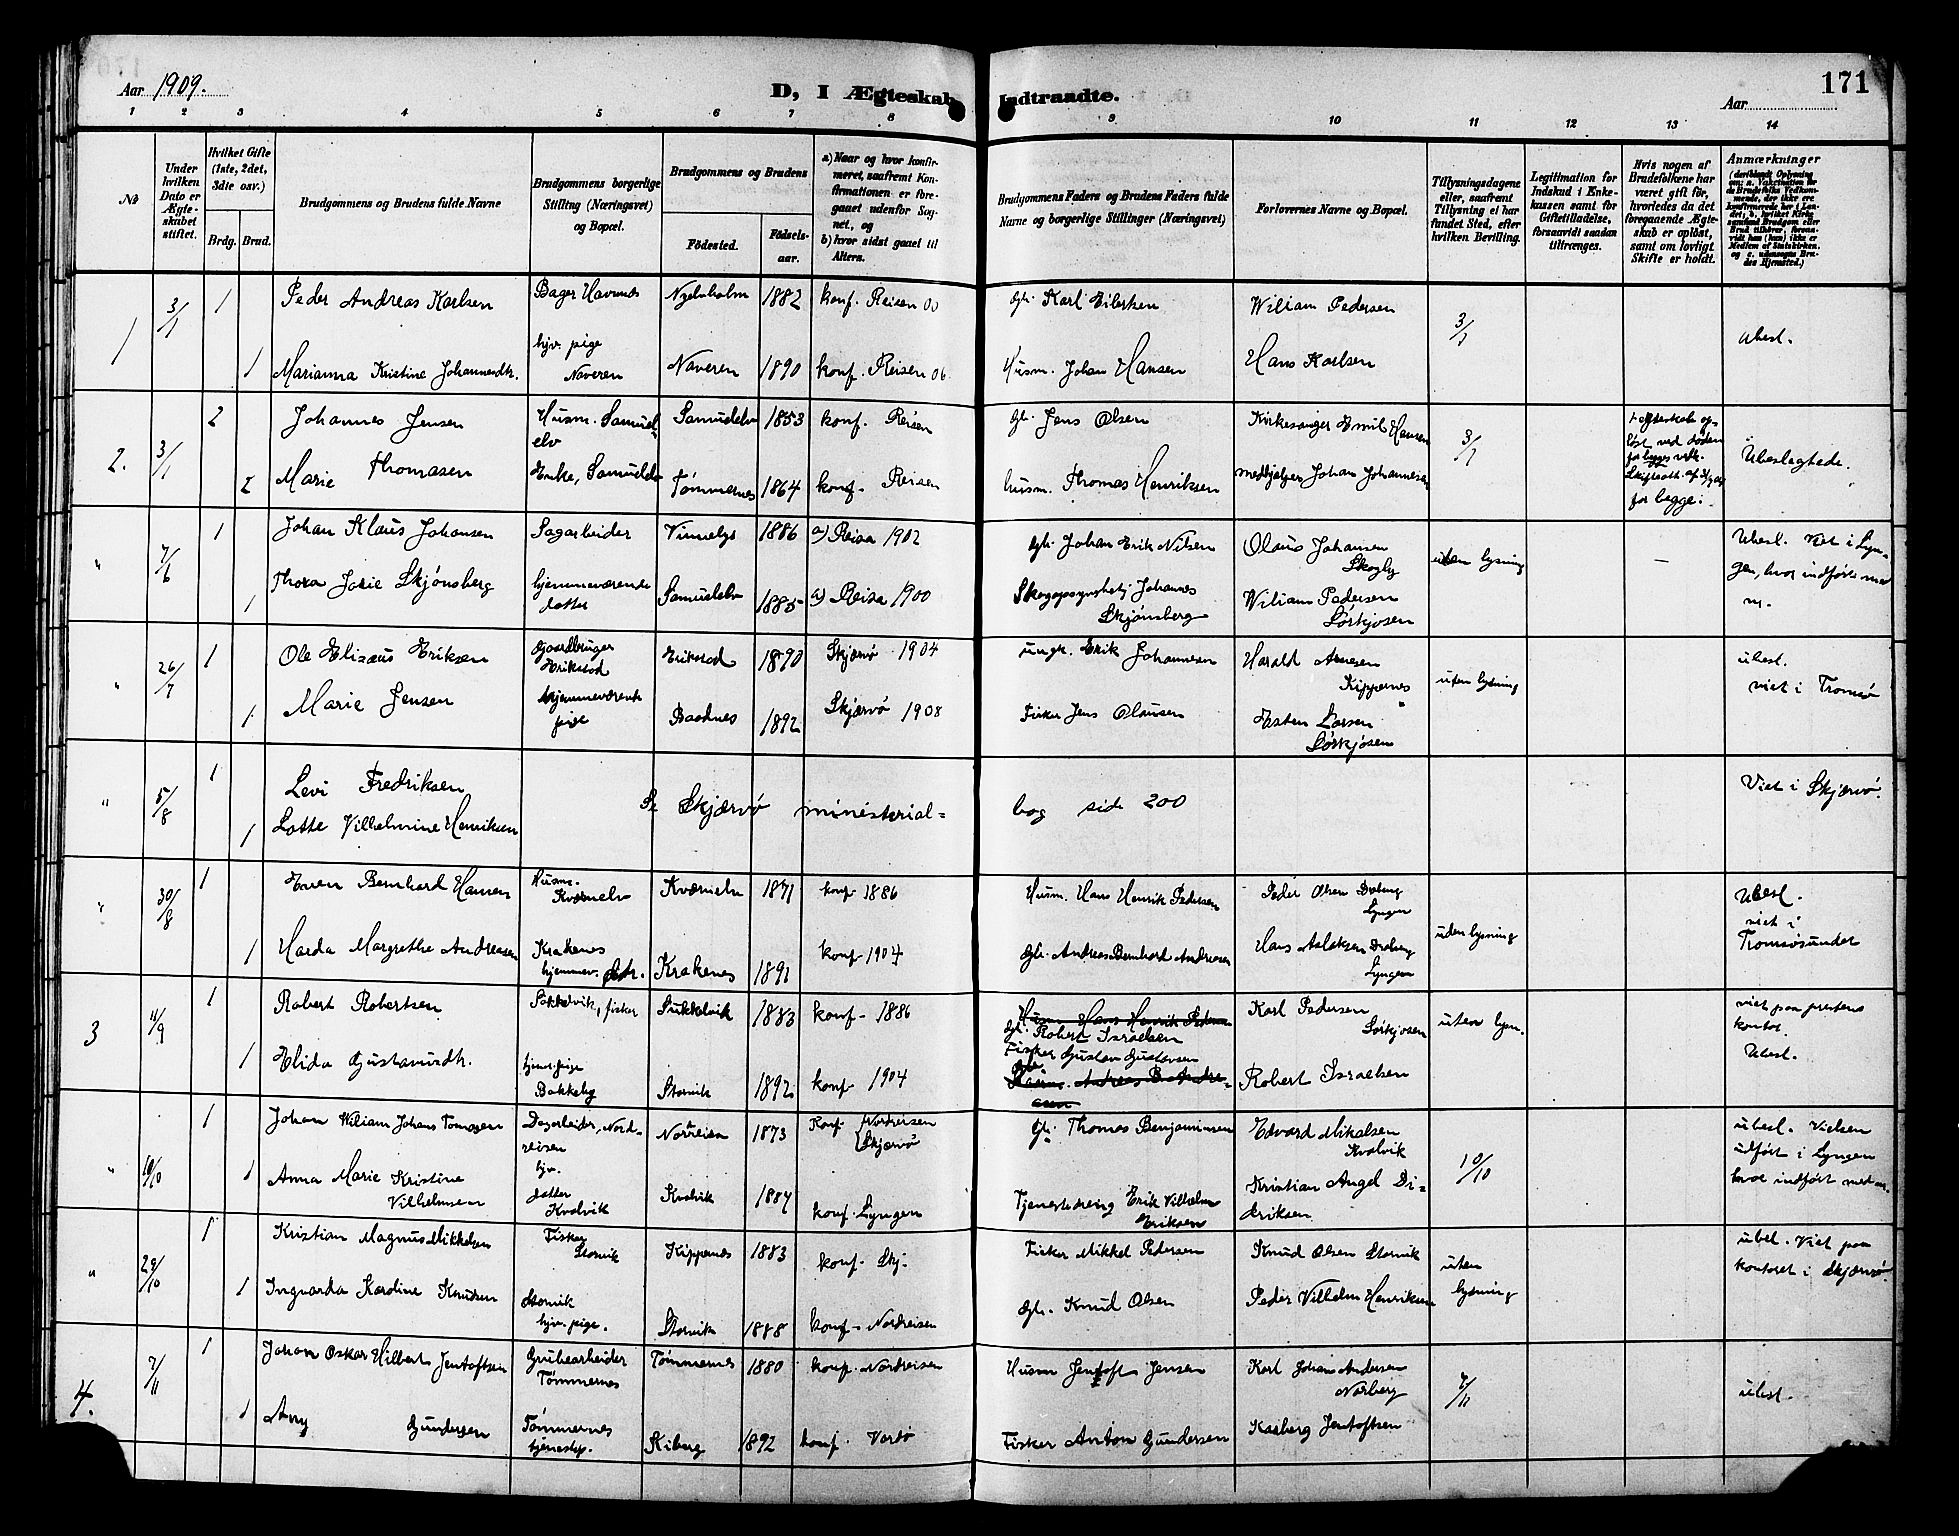 171
Aar 1909.
D, I Ægteskab Indtraadte.
Aar
1 2 3 4 5 6 7 8 9 10 11 12 13 14
No
Under hvilken Dato er Ægteskabet stiftet.
Hvilket Gifte (1ste, 2det, 3die osv.)
Brdg. Brud.
Brudgommens og Brudens fulde Navne
Brudgommens borgerlige Stilling (Næringsvei) og Bopæl.
Brudgommens og Brudens
Fødested.
Fødselsaar.
a) Naar og hvor konfirmeret, saafremt Konfirmationen er foregaaet udenfor Sognet, og
b) hvor sidst gaaet til Alters.
Brudgommens Faders og Brudens Faders fulde Navne og borgerlige Stillinger (Næringsvei)
Forlovernes Navne og Bopæl.
Tillysningsdagene eller, saafremt Tillysning ei har fundet Sted, efter hvilken Bevilling.
Legitimation for Indskud i Enkekassen samt for Giftetilladelse, forsaavidt saadan tiltrænges.
Hvis nogen af Brudefolkene har været gift før, hvorledes da det foregaaende Ægteskab er opløst, samt om lovligt Skifte er holdt.
Anmærkninger
1 3/1 1 Peder Andreas Karlsen Bager Havnnes 1882 konf. Reisen 00 gbr. Karl Eilertsen Wiliam Pedersen 3/1 Ubesl.
1 Marianna Kristine Johannesdtr. hjv. pige Naveren Naveren 1890 konf. Reisen 06 Husm. Johan Hansen Hans Karlsen
2. 3/1 2 Johannes Jensen Husm. Samuelelv Samuelelv 1853 konf. Reisen gbr. Jens Olsen Kirkesanger Emil Hansen 3/1 Ubeslegtede.
2 Marie Thomasen Enke, Samuelelv Tømmernes 1864 konf. Reisen husm. Thomas Henriksen medhjelper Johan Johannesen for begge.
" 7/6 1 Johan Klaus Johansen Sagarbeider 1886 a) Reisa 1902 gbr. Johan Erik Nilsen Olaus Johansen Skogly uten lysning — Ubesl. Viet i Lyngen, hvor indført med nr.
1 Thora Jorie Skjønsberg hjemmeværende datter Samuelelv 1885 a) Reisa 1900 Johannes Skjønsberg Wiliam Pedersen Sørkjosen
" 26/7 1 Ole Elisæus Eriksen gaardbruger Erikstad Erikstad 1890 Skjærvø 1904 ungk. Erik Johannesen Harald Arnesen Kippernes uten lysning ubesl. viet i Tromsø
1 Marie Jensen hjemmeværende pige Baadnes 1892 Skjærvø 1908 Fisker Jens Olausen Larsen Sørkjosen
" 5/8 1 Levi Fredriksen Se Skjærvø ministerialbog side 200 Viet i Skjærvø.
1 Lotte Vilhelmine Henriksen
" 30/8 1 Even Bernhard Hansen Husm. Kvænnelv Kvænnelv 1871 konf 1886 Husm. Hans Henrik Pedersen Peder Olsen Lyngen uden lysning Ubesl. viet i Tromsøsundet
1 Harda Margrethe Andreasen Krakenes hjemmev. dtr. Krakenes 1891 konf 1904 gbr. Andreas Bernhard Andreasen Hans Aslaksen Lyngen
3 11/9 1 Robert Robertsen fisker Sukkelvik 1883 konf 1886 Husm Hans Henrik Pedersen gbr. Robert Israelsen Karl Pedersen Sørkjosen uten lysn. viet paa prestens kontor. Ubesl.
1 Elida Gustavusdtr. tjenestpige Bakkeby Storvik 1892 konf 1904 Fisker Gustav Gustavsen Andreas B. Andreasen Robert Israelsen
" 10/10 1 Johan Wiliam Johans Tomasen Dagarbeider, Nordreisen Norreisen 1873 Konf Nordreisen Skjærvø gbr. Thomas Benjaminsen Edvard Mikalsen Kvalvik 10/10 ubesl. Vielsen udført i Lyngen hvor indført med nr.
1 Anna Marie Kristine Vilhelmsen hjv. datter Kvalvik Kvalvik 1884 konf. Lyngen Tjenestedreng Erik Vilhelm Eriksen Kristian Angel Dideriksen
" 29/10 1 Kristian Magnus Mikkelsen Fisker Storvik Kippernes 1883 konf. Skj. Fisker Mikkel Pedersen Knud Olsen Storvik uten lysning ubesl. Viet paa kontoret i Skjærvø.
1 Ingvarda Karoline Knudsen Storvik hjv. pige. Storvik 1888 konf. Nordreisen gbr. Knud Olsen Peder Vilhelm Henriksen
4. 7/11 1 Johan Oskar Hilbert Jentoftsen Grubearbeider Tømmernes Tømmernes 1880 konf. Nordreisen Husm Jentoft Jensen Karl Johan Andersen Norberg 7/11 ubesl.
1 Any Gundersen Tømmernes tjenestep. Kiberg 1892 konf. Vardø Fisker Anton Gundersen Kasberg Jentoftsen